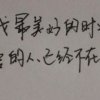 我最美好的时
的人、已经不在